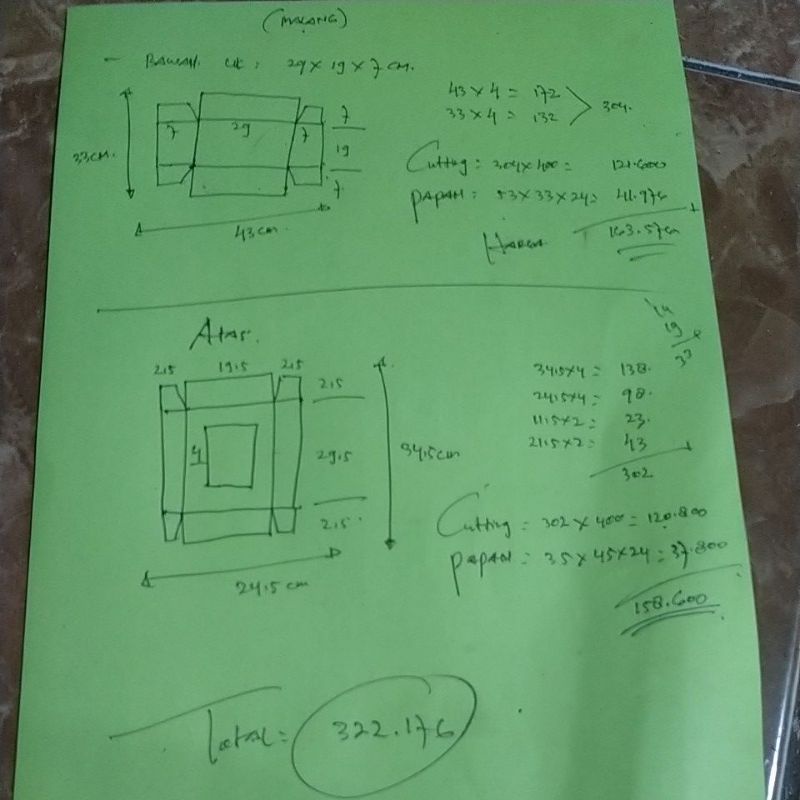 (MALANG)
- BAWAH UK: 29 x 19 x 7 CM.
43 x 4 = 172
33 x 4 = 132
304.
7 29 7
7
19
7
33CM.
43 cm.
Cutting = 304 x 400 = 121.600
PAPAN = 53 x 33 x 24 = 41.976
HARGA 163.576
ATAS.
2,5 19.5 2,5
2,5
29.5
2,5
34.5 cm
24.5 cm
34.5 x 4 = 138.
24.5 x 4 = 98.
11.5 x 2 = 23.
21.5 x 2 = 43
302
Cutting = 302 x 400 = 120.800
PAPAN = 35 x 45 x 24 = 37.800
158.600
TOTAL = 322.176